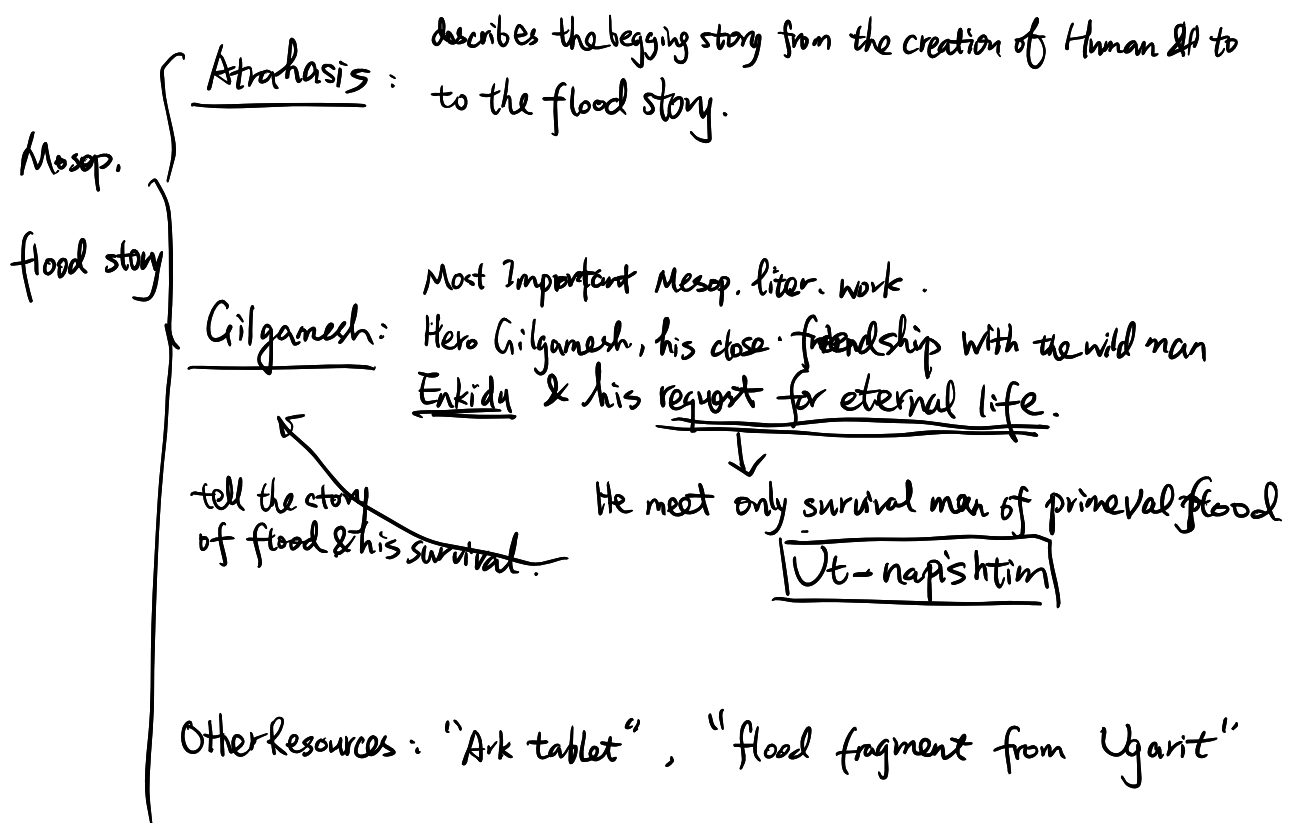 describes the begging story from the creation of Human to
Atrahasis :
to the flood story.
Mesop.
flood story
Most Important Mesop. liter. work .
Gilgamesh :
Hero Gilgamesh, his close friendship with the wild man
Enkidu & his request for eternal life.
He meet only survival man of primeval flood
Ut-napishtim
tell the story
of flood & his survival.
Other Resources : "Ark tablet" , "flood fragment from Ugarit"